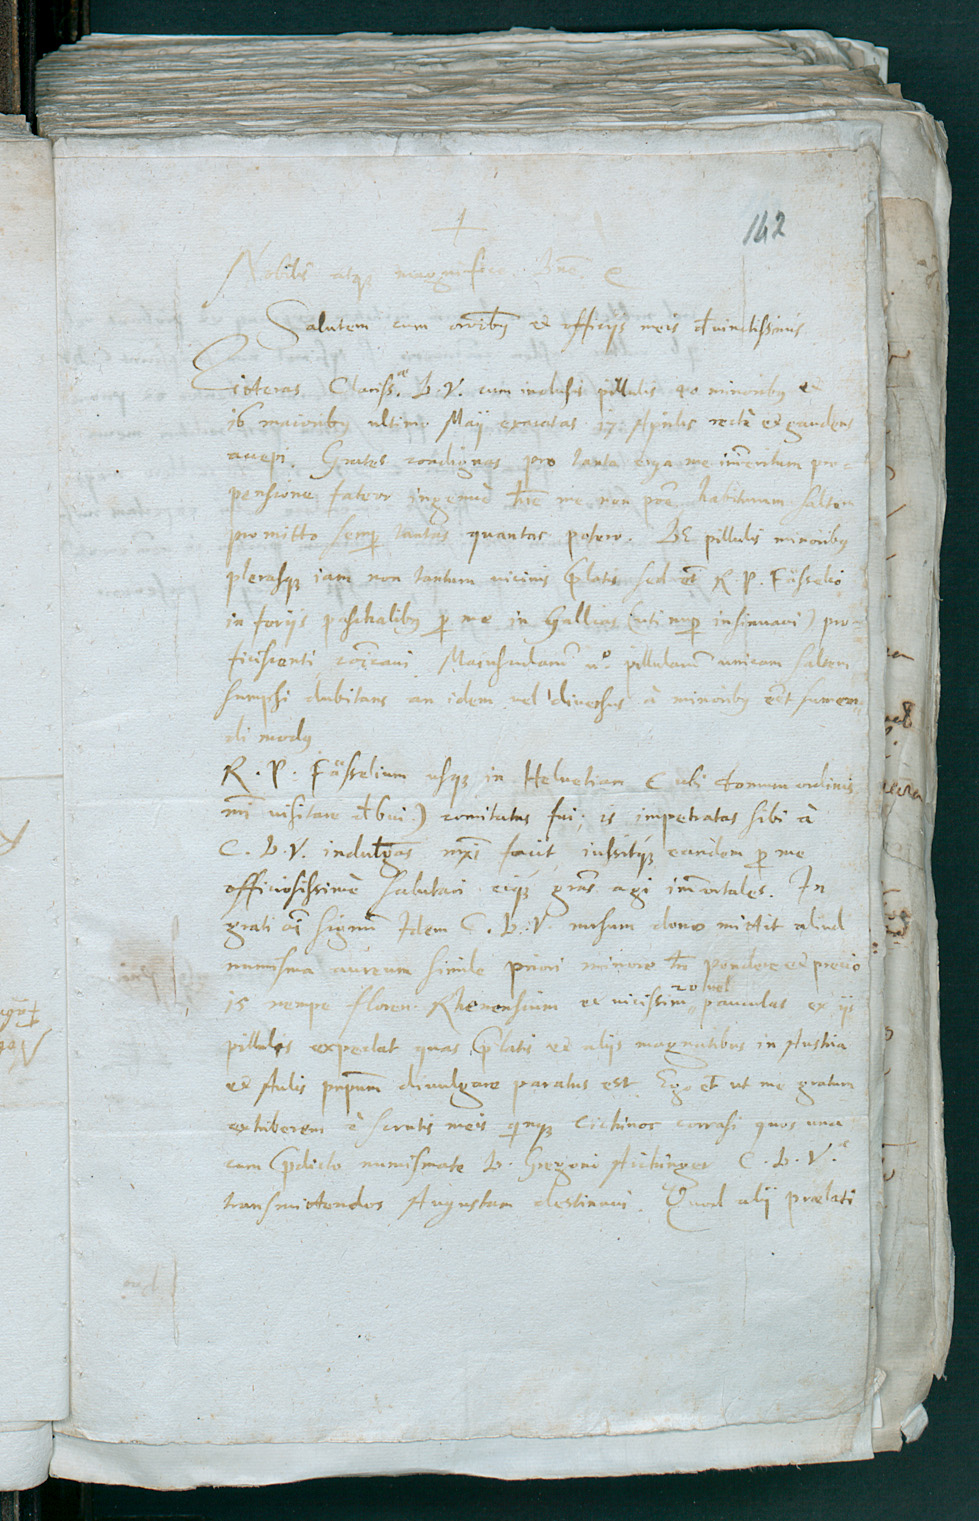 142
Nobilis atq3 magnifice Dne
Salutem cum orõib9 et officijs meis dvinctissimis
Litteras Clariss.æ D. V. cum inclusis pillulis 40 minorib9 et
16 maiorib9 ultimo Maij exaratas 17 Aprilis rectè et gaudens
accepi. Grates condignas pro tanta erga me inmeritum pro-
pensione fateor ingenuè me non habiturum saltem
promitto semp tantas quantas potero. DE pillulis minorib9
plerasq3 iam non tantum vicinis Platis sed et R. P. Fässelio
in ferijs paschalib9 p me in Gallias (uti nup insinuavi) pro-
ficiscenti cõicavi Maiuscularu v° pillularu unicam saltem
sumpsi dubitans an idem vel diversus à minorib9 eet sumen-
di modus
R. P. Fässelium usq3 in Helvetiam (ubi domum ordinis
mi visitare dbui) comitatus fui; is impetratas sibi à
C. D. V. indulgas mxi facit, iussitq3 eandem p me
officiosissimè salutari eiq3 gras agi imortales. In
grati ai signu Idem C. D. V. rursum dono mittit aliud
numisma aureum simile priori minore tn pondere et precio
15 nempe floren. Rhenensium et vicissim pauculas ex ijs
20 vel
pillulis expectat quas Platis et alijs magnatibus in Austria
et Aulis pncipum divulgare paratus est. Ego et ut me gratum
exhiberem è scrutis meis quinq3 Cichinos corrasi quos una
cum Pdicto numismate D. Gregorio Aichinger C. D. V.æ
transmittendos Augustam destinavi. Quod alij prælati